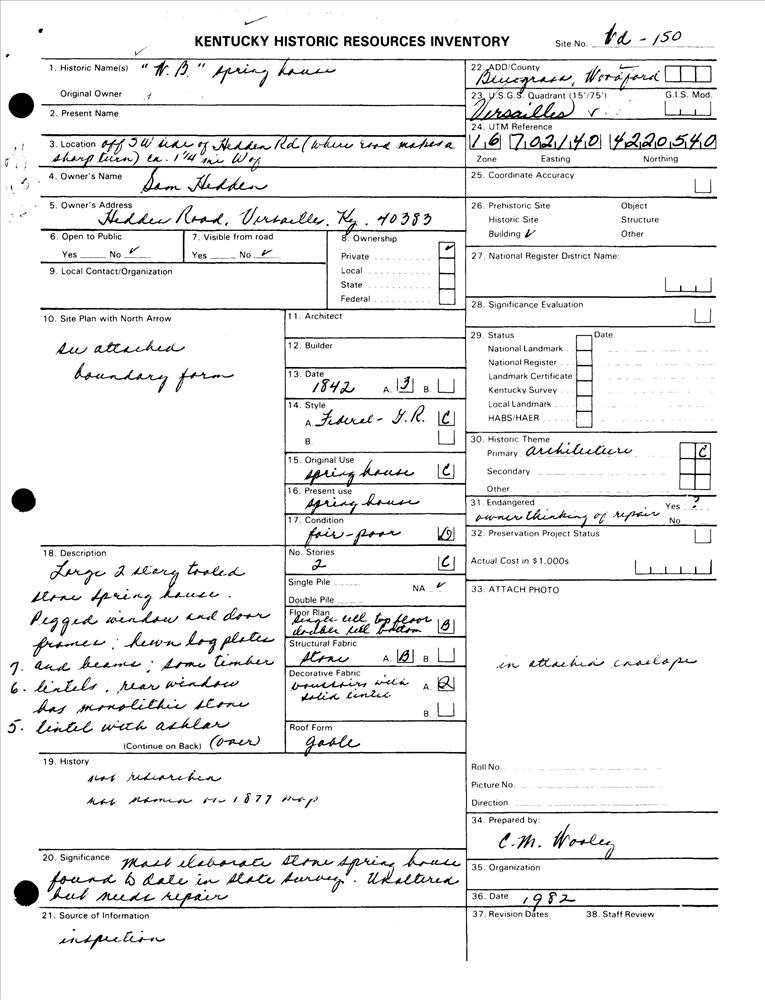 KENTUCKY HISTORIC RESOURCES INVENTORY
Site No. Wd - 150
1. Historic Name(s) "W. B." spring house
Original Owner
2. Present Name
3. Location off SW side of Hedden Rd (where road makes a
sharp turn) ca. 1 1/4 mi W of
4. Owner's Name Sam Hedden
5. Owner's Address
Hedden Road, Versailles, Ky. 40383
6. Open to Public
Yes No ✓
7. Visible from road
Yes No ✓
8. Ownership
Private ✓
Local
State
Federal
9. Local Contact/Organization
10. Site Plan with North Arrow
see attached
boundary form
11. Architect
12. Builder
13. Date
1842 A. 3 B.
14. Style
A. Federal - G.R. C
B.
15. Original Use
spring house C
16. Present use
spring house
17. Condition
fair-poor
18. Description
Large 2 story tooled
stone spring house.
Pegged window and door
frames; hewn log plates
7. and beams; some timber
6. lintels, rear window
has monolithic stone
5. lintel with ashlar
(Continue on Back) (over)
No. Stories
2 C
Single Pile
NA ✓
Double Pile
Floor Plan
single cell top floor
double cell bottom B
Structural Fabric
stone A. B B.
Decorative Fabric
voussoirs with A.
solid lintel
B.
Roof Form
gable
19. History
not researched
not named on 1877 map
20. Significance Most elaborate stone spring house
found to date in state survey. Unaltered
but needs repair
21. Source of Information
inspection
22. ADD/County
Bluegrass, Woodford
23. U.S.G.S. Quadrant (15'/75') G.I.S. Mod.
Versailles
24. UTM Reference
16 702140 4220540
Zone Easting Northing
25. Coordinate Accuracy
26. Prehistoric Site Object
Historic Site Structure
Building ✓ Other
27. National Register District Name:
28. Significance Evaluation
29. Status Date
National Landmark
National Register
Landmark Certificate
Kentucky Survey
Local Landmark
HABS/HAER
30. Historic Theme
Primary architecture C
Secondary
Other
31. Endangered Yes ?
owner thinking of repair No
32. Preservation Project Status
Actual Cost in $1,000s
33. ATTACH PHOTO
in attached envelope
Roll No.
Picture No.
Direction
34. Prepared by:
C.M. Wooley
35. Organization
36. Date 1982
37. Revision Dates 38. Staff Review